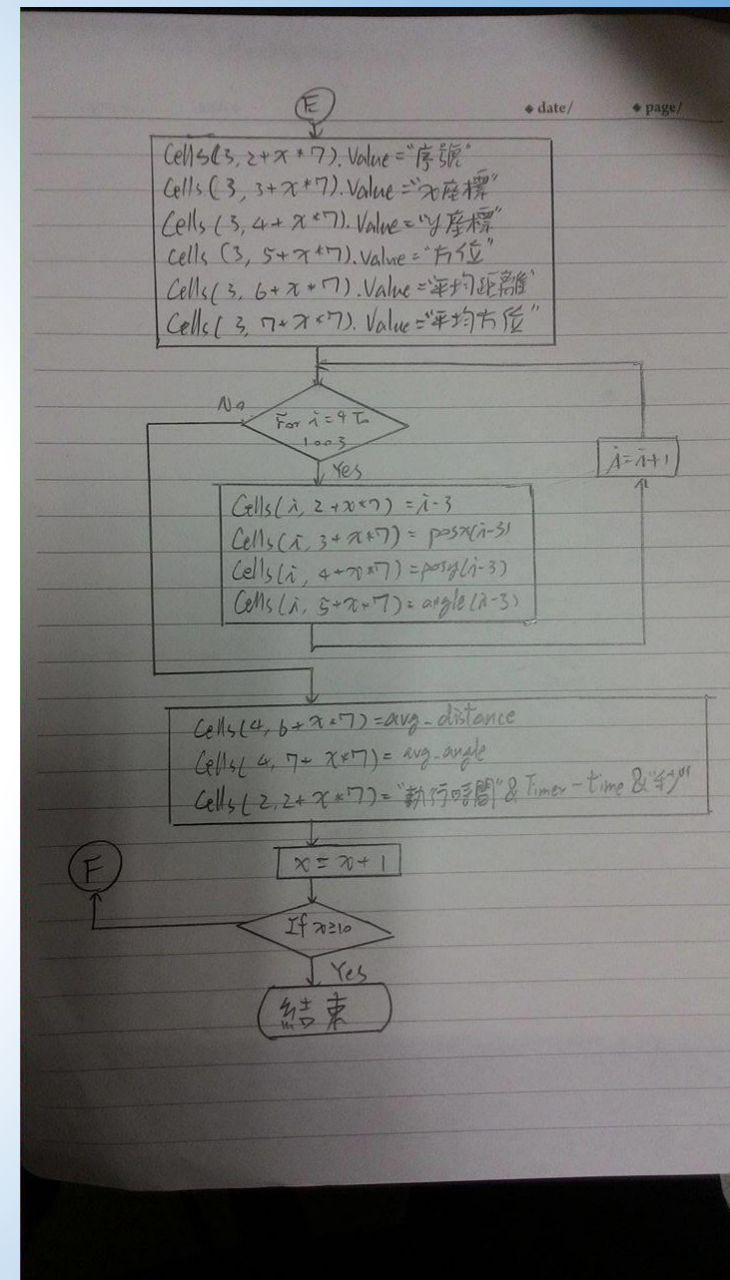 E
◆ date/ ◆ page/
Cells(3, 2+x*7).Value="序號"
Cells(3, 3+x*7).Value="x座標"
Cells(3, 4+x*7).Value="y座標"
Cells(3, 5+x*7).Value="方位"
Cells(3, 6+x*7).Value="平均距離"
Cells(3, 7+x*7).Value="平均方位"
No
For i=4 To
1003
Yes
i=i+1
Cells(i, 2+x*7)=i-3
Cells(i, 3+x*7)=posx(i-3)
Cells(i, 4+x*7)=posy(i-3)
Cells(i, 5+x*7)=angle(i-3)
Cells(4, 6+x*7)=avg_distance
Cells(4, 7+x*7)=avg_angle
Cells(2, 2+x*7)="執行時間" & Timer-time & "秒"
x=x+1
F
If x≥10
Yes
結束